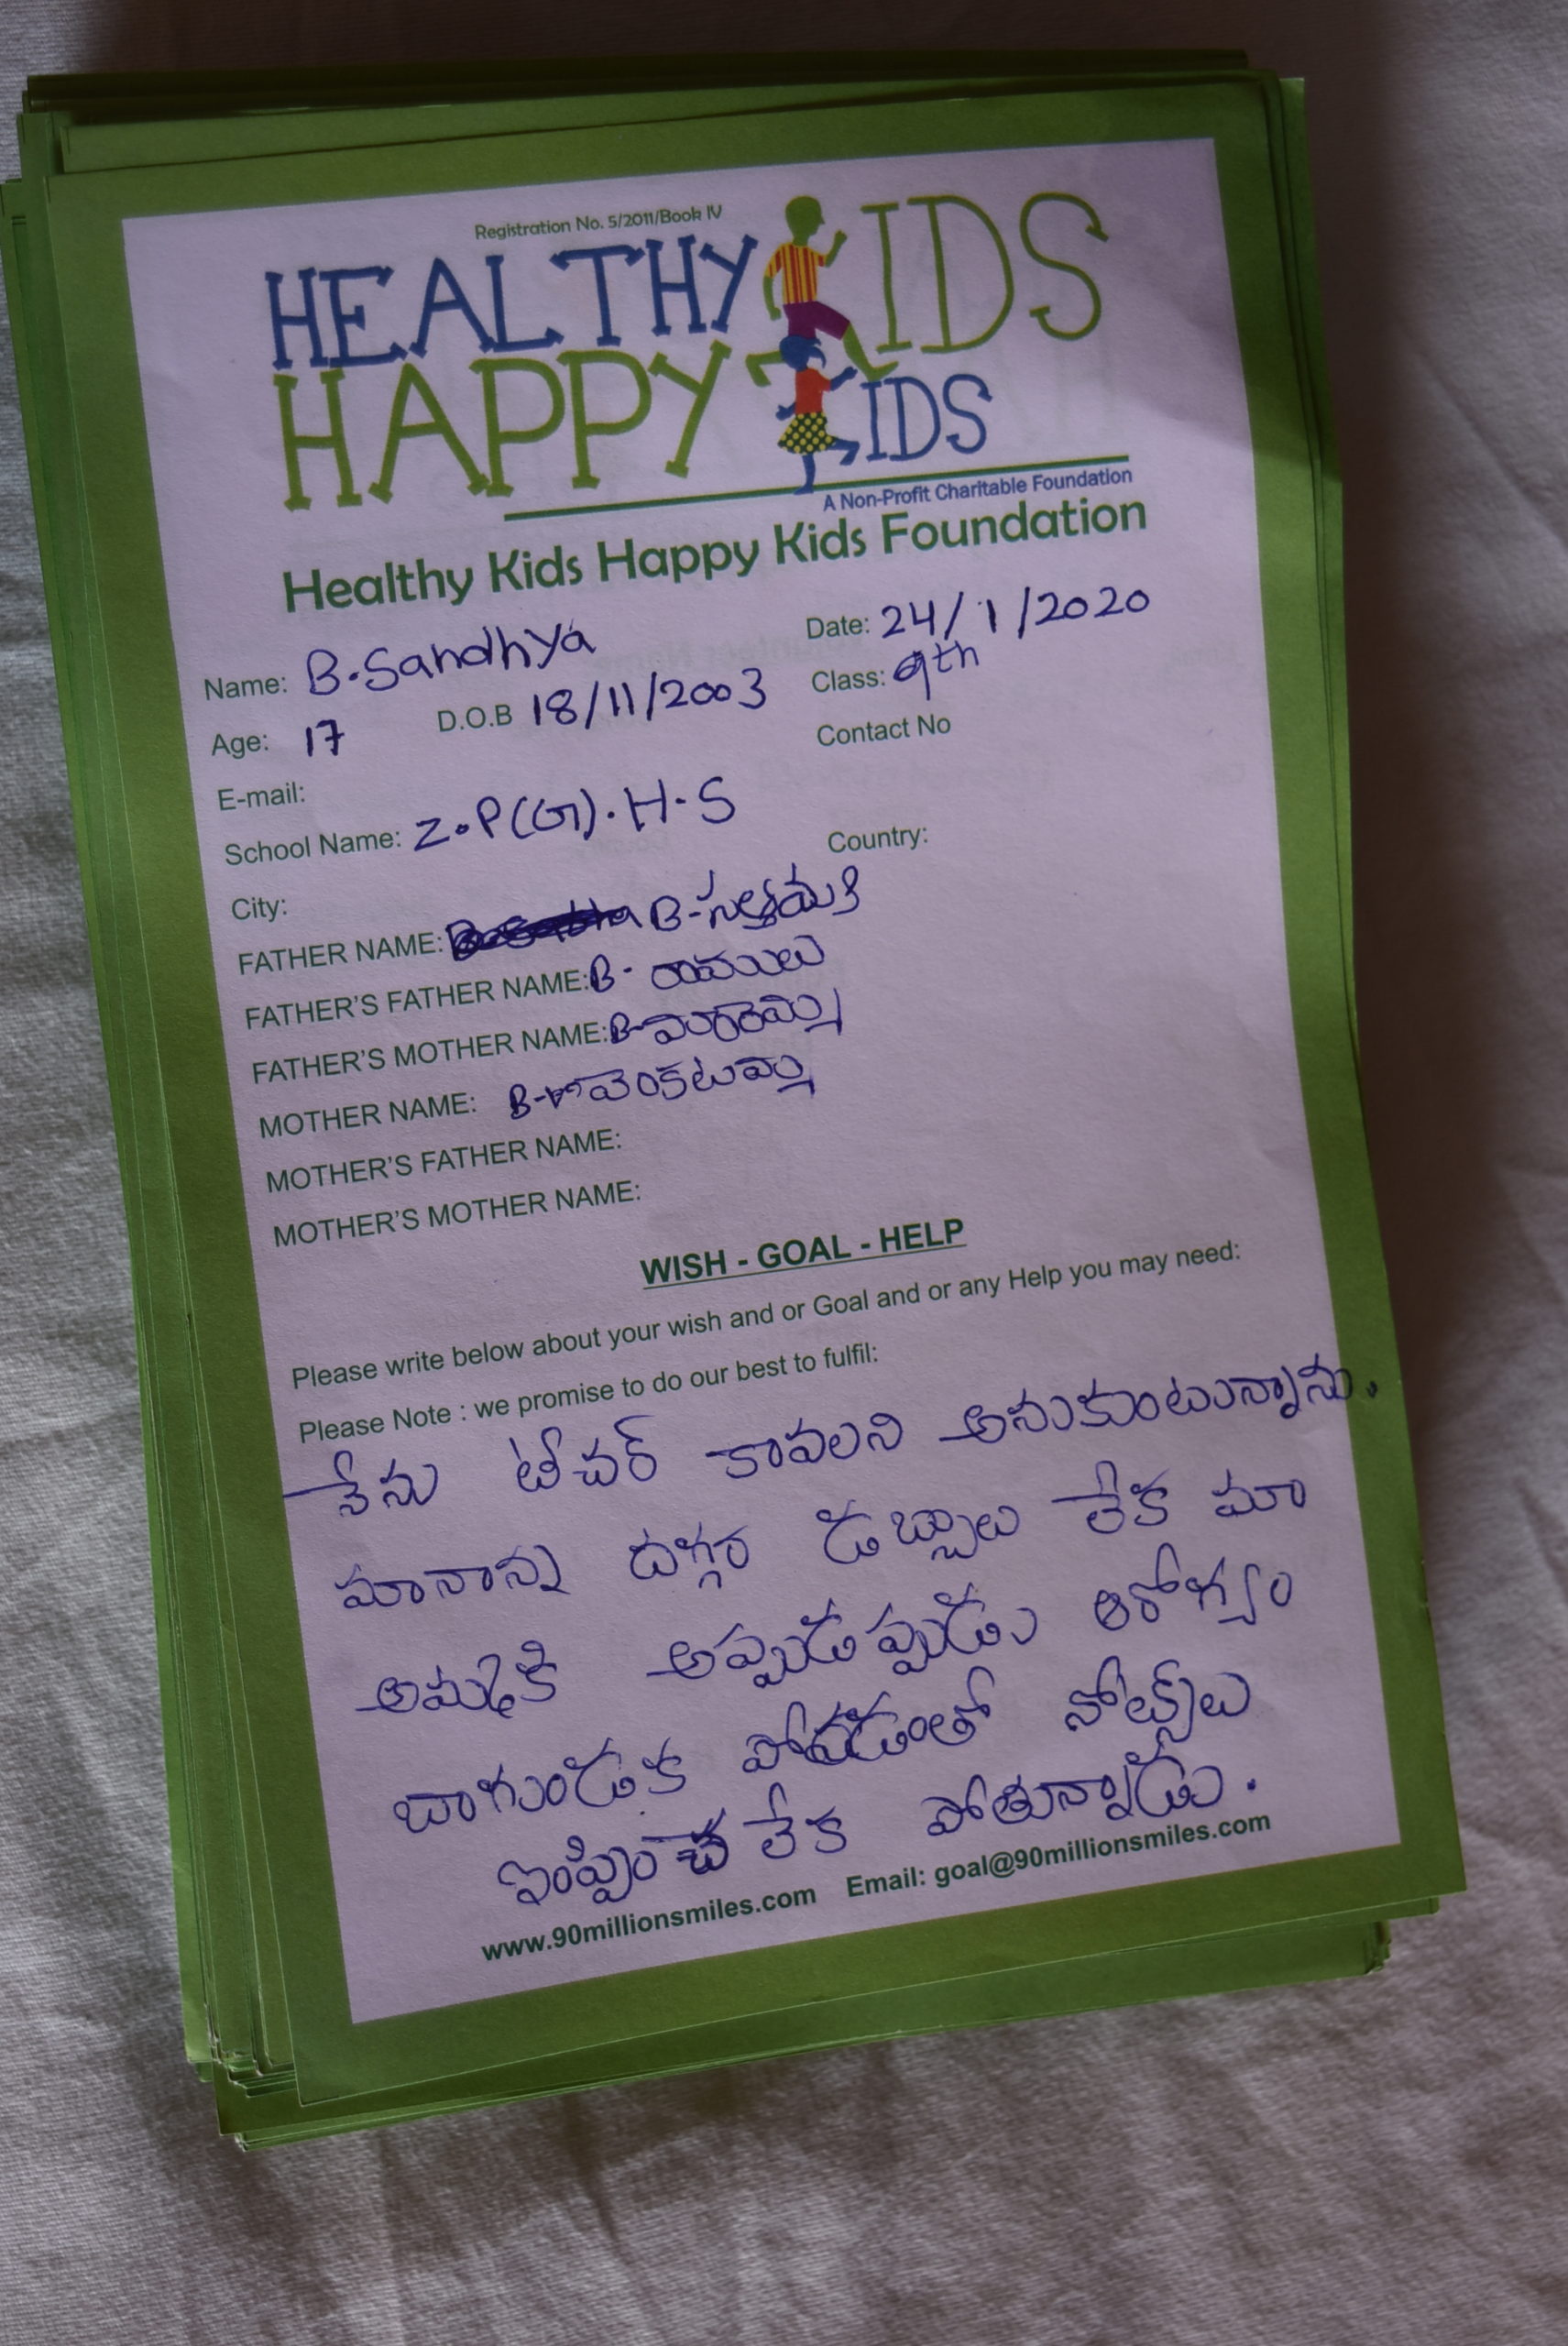 Registration No. 5/2011/Book IV
HEALTHY KIDS
HAPPY KIDS
A Non-Profit Charitable Foundation
Healthy Kids Happy Kids Foundation
Name: B.Sandhya Date: 24/1/2020
Age: 17 D.O.B 18/11/2003 Class: 9th
E-mail: Contact No
School Name: Z.P(G).H.S
City: Country:
FATHER NAME: B-
FATHER'S FATHER NAME: B- రాములు
FATHER'S MOTHER NAME: B-
MOTHER NAME: B- వెంకటమ్మ
MOTHER'S FATHER NAME:
MOTHER'S MOTHER NAME:
WISH - GOAL - HELP
Please write below about your wish and or Goal and or any Help you may need:
Please Note : we promise to do our best to fulfil:
నేను టీచర్ కావలని అనుకుంటున్నాను.
మానాన్న దగ్గర డబ్బులు లేక మా
అమ్మకి అప్పుడప్పుడు ఆరోగ్యం
బాగుండక పోవడంతో నోట్స్‌లు
ఇంప్పించ లేక పోతున్నాడు.
www.90millionsmiles.com Email: goal@90millionsmiles.com